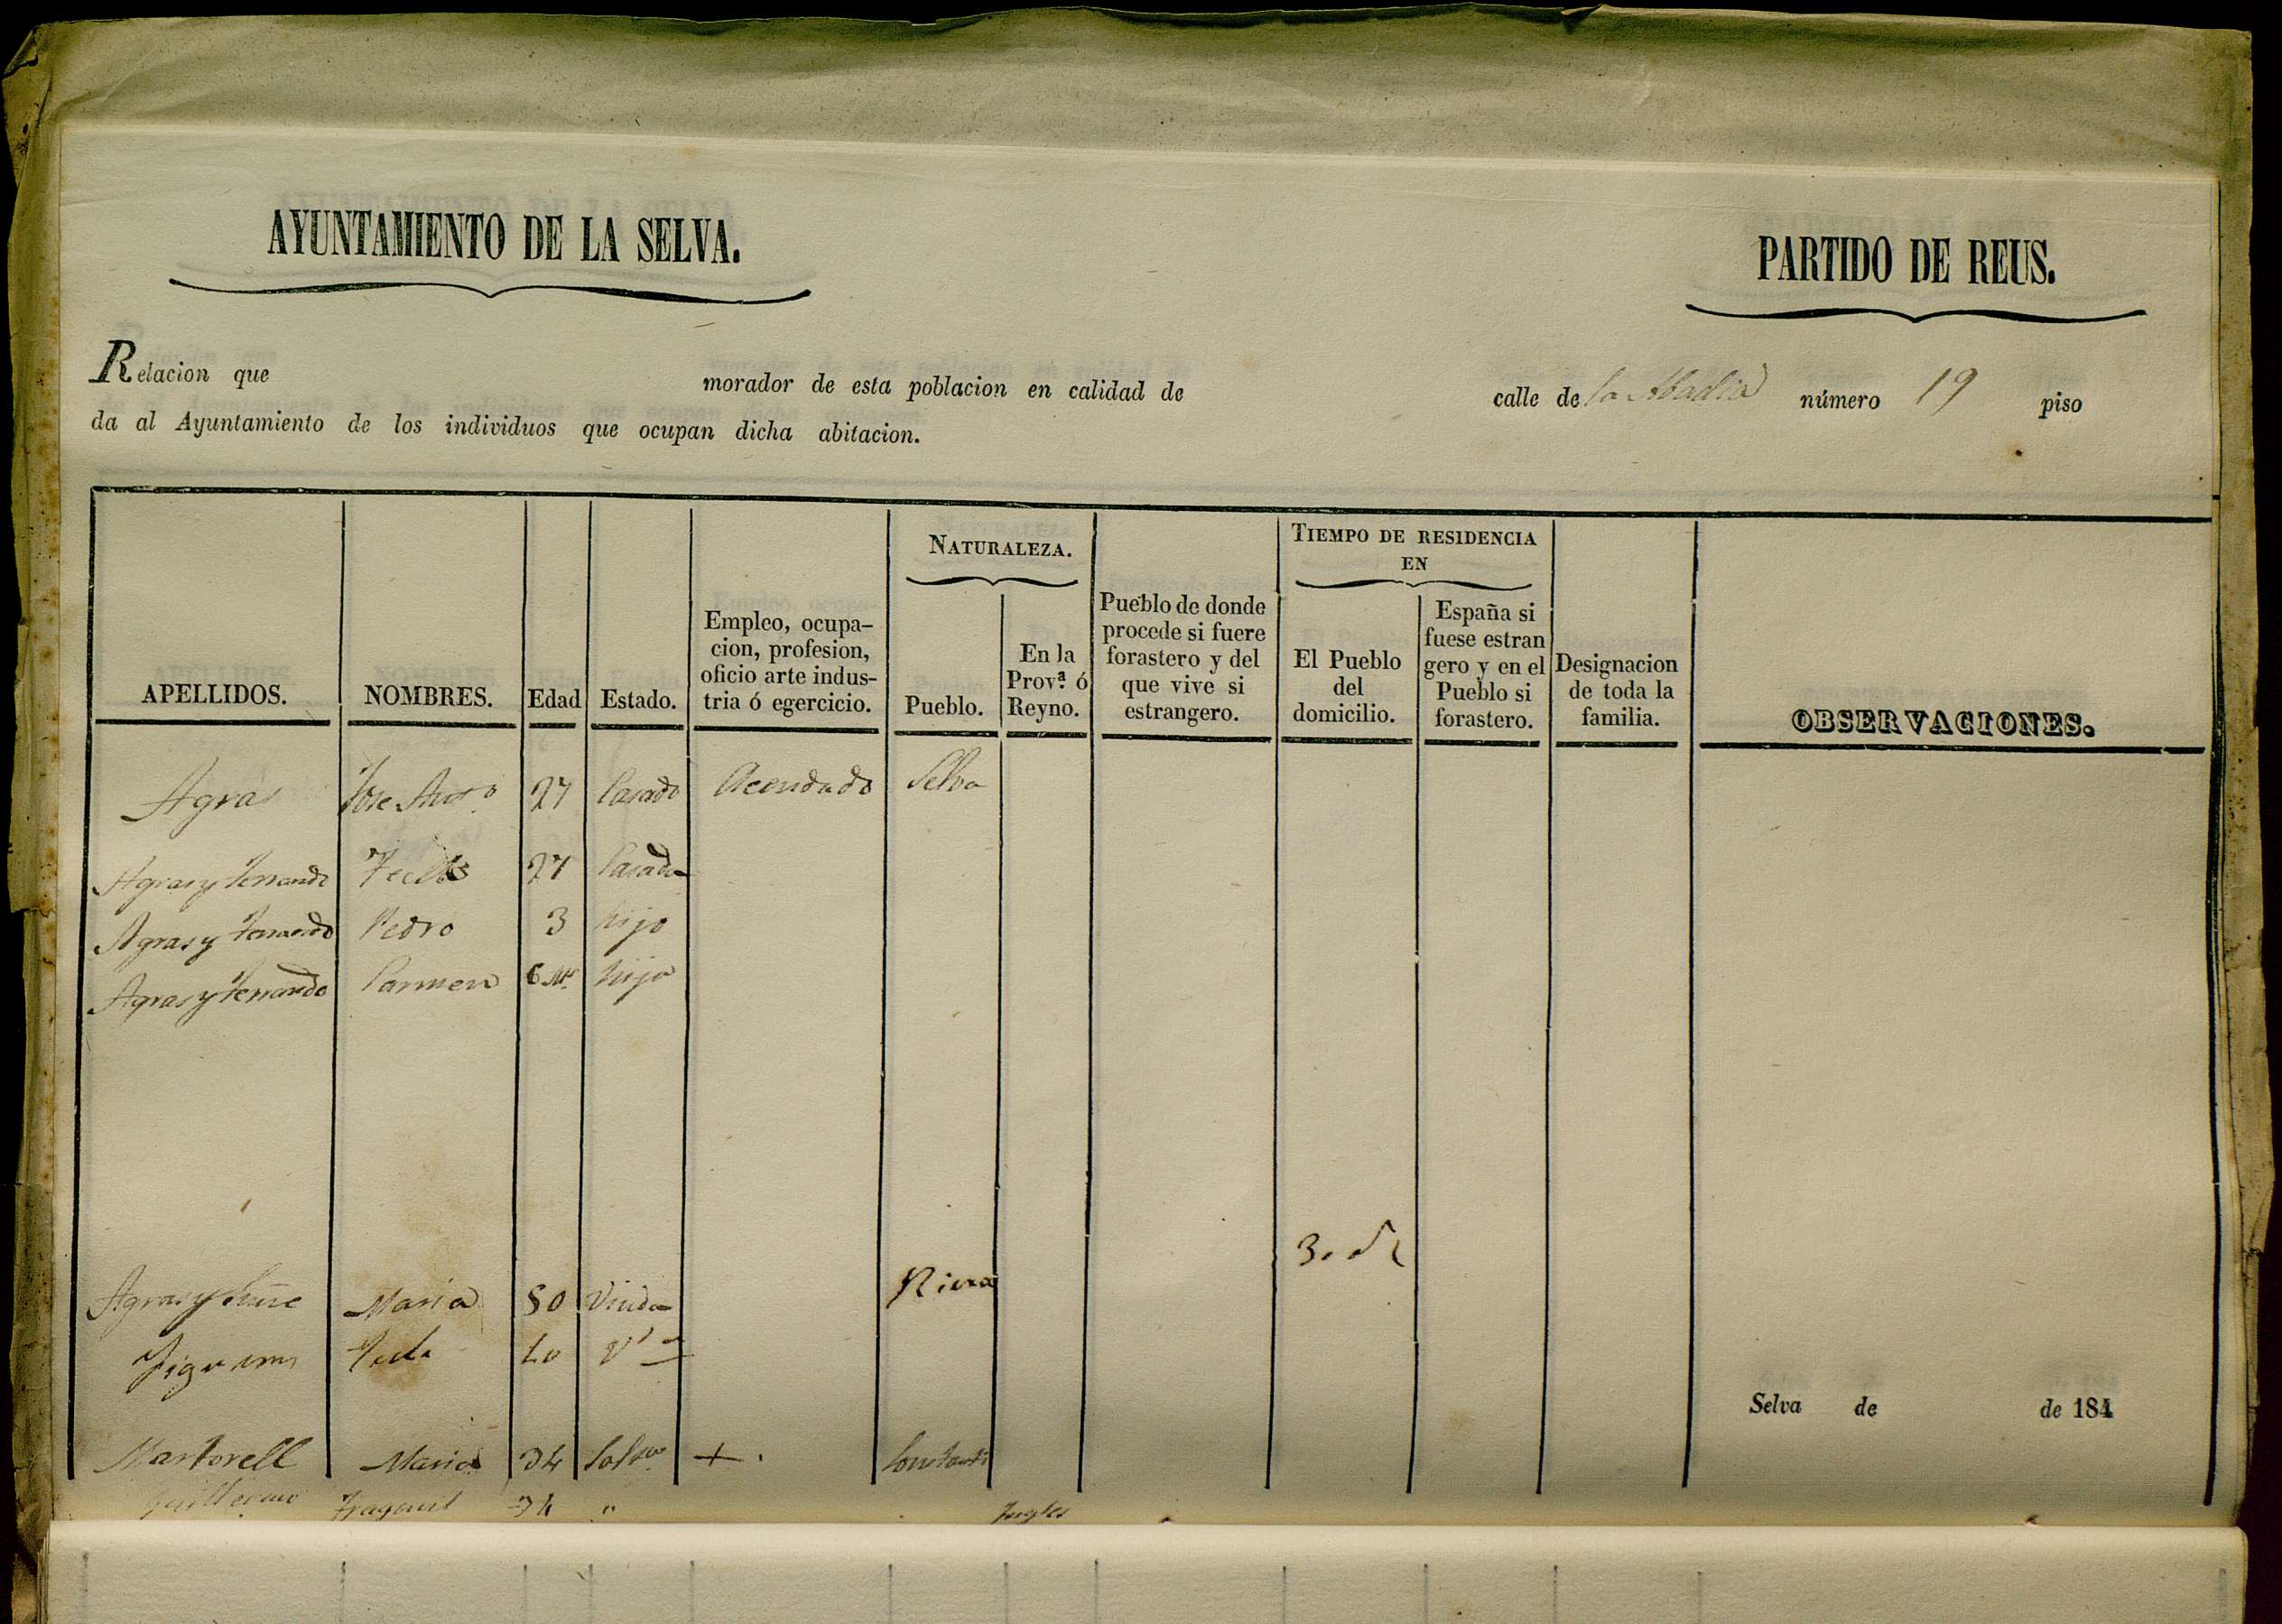 AYUNTAMIENTO DE LA SELVA.
PARTIDO DE REUS.
Relacion que morador de esta poblacion en calidad de calle de la Abadia número 19 piso
da al Ayuntamiento de los individuos que ocupan dicha abitacion.
NATURALEZA.
TIEMPO DE RESIDENCIA
EN
APELLIDOS.
NOMBRES.
Edad
Estado.
Empleo, ocupa-
cion, profesion,
oficio arte indus-
tria ó egercicio.
Pueblo.
En la
Prov.ª ó
Reyno.
Pueblo de donde
procede si fuere
forastero y del
que vive si
estrangero.
El Pueblo
del
domicilio.
España si
fuese estran
gero y en el
Pueblo si
forastero.
Designacion
de toda la
familia.
OBSERVACIONES.
Agras Jose Anto 27 Casado Acendado Selva
Agras y Ferrando Tecla 27 Casada
Agras y Ferrando Pedro 3 hijo
Agras y Ferrando Carmen 6 Ms hija
Agras y Maria 50 Viuda Riera
Tecla
Martorell Maria 34 Constanti
Guillermo 34 " Ingles
Selva de de 184